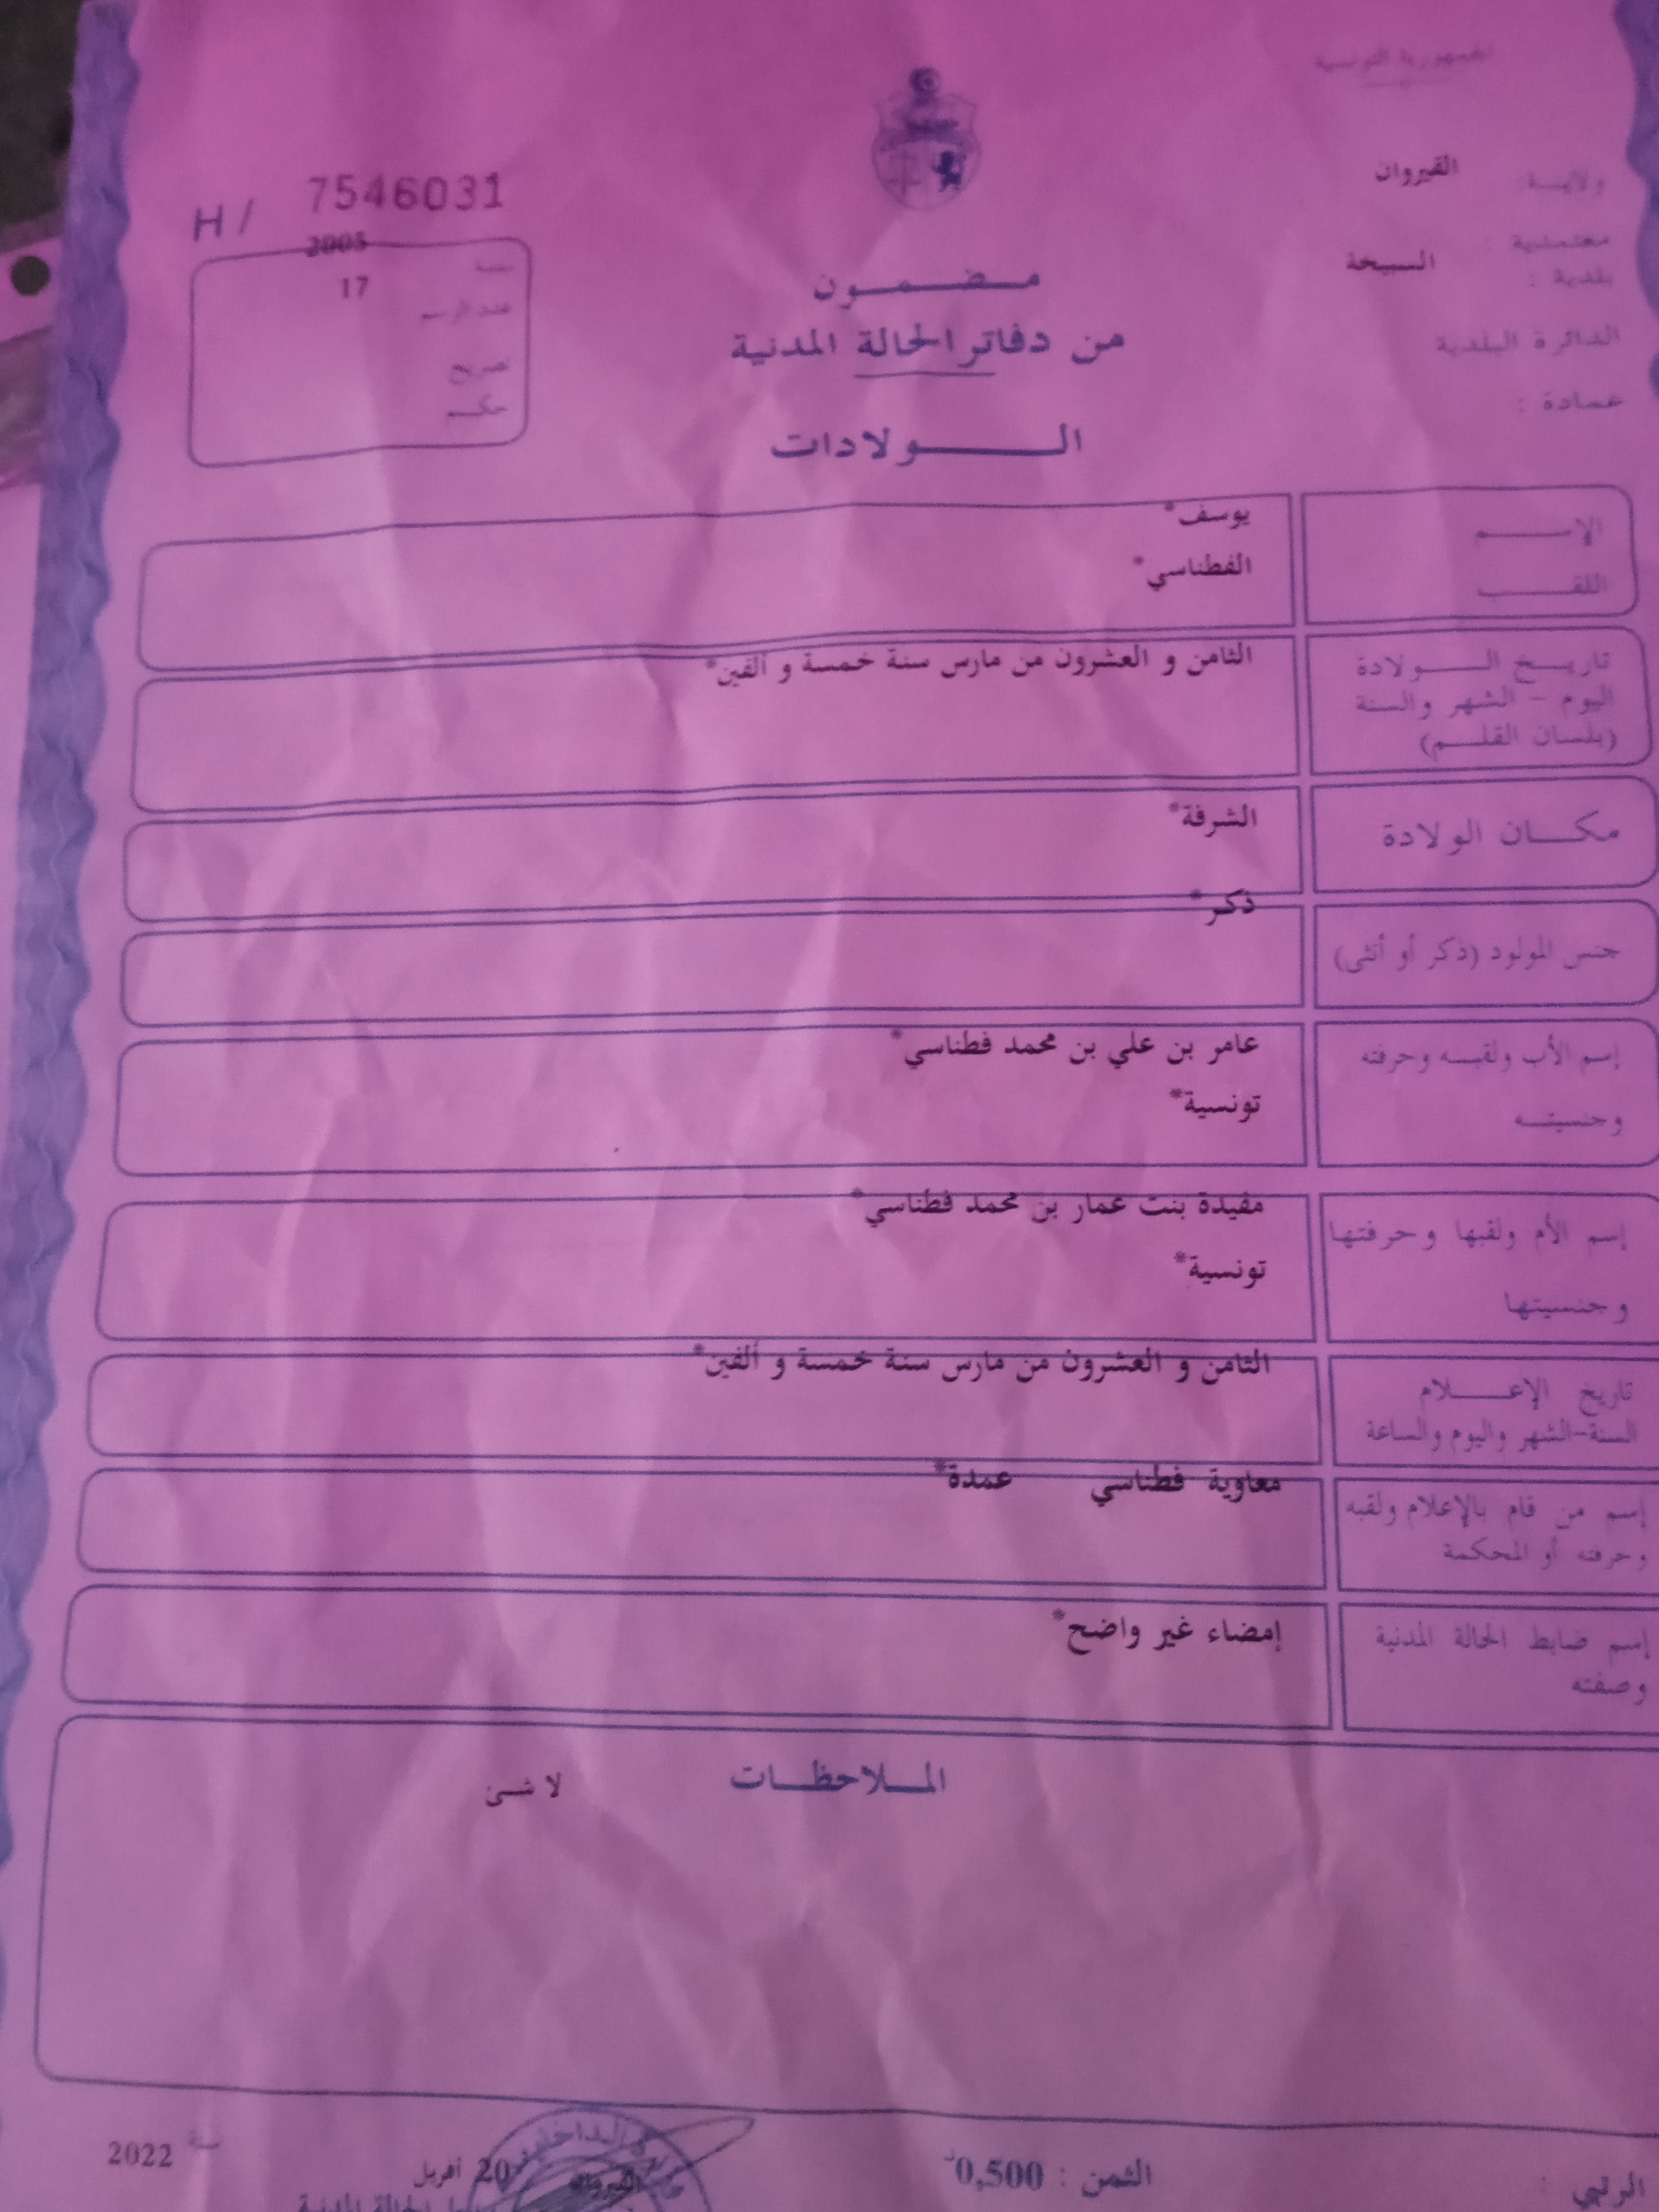 الجمهورية التونسية
ولايـة: القيروان
معتمدية :
بلدية : السبيخة
الدائرة البلدية
عمادة :
H / 7546031
سنة 2005
عدد الرسم 17
تصريح
حكـم
مـضـمـون
من دفاتر الحالة المدنية
الـولادات
الإسـم يوسف*
اللقـب الفطناسي*
تاريـخ الـولادة الثامن و العشرون من مارس سنة خمسة و ألفين*
اليوم - الشهر والسنة
(بلسان القلـم)
مكـان الولادة الشرفة*
جنس المولود (ذكر أو أنثى) ذكر*
إسم الأب ولقبـه وحرفته عامر بن علي بن محمد فطناسي*
وجنسيتـه تونسية*
إسم الأم ولقبها وحرفتها مفيدة بنت عمار بن محمد فطناسي*
وجنسيتها تونسية*
تاريخ الإعـلام الثامن و العشرون من مارس سنة خمسة و ألفين*
السنة-الشهر واليوم والساعة
إسم من قام بالإعلام ولقبه معاوية فطناسي عمدة*
وحرفته أو المحكمة
إسم ضابط الحالة المدنية إمضاء غير واضح*
وصفته
المـلاحظـات
لا شئ
الثمن : 0,500د
20 أفريل سنة 2022
القيروان
الحالة المدنية